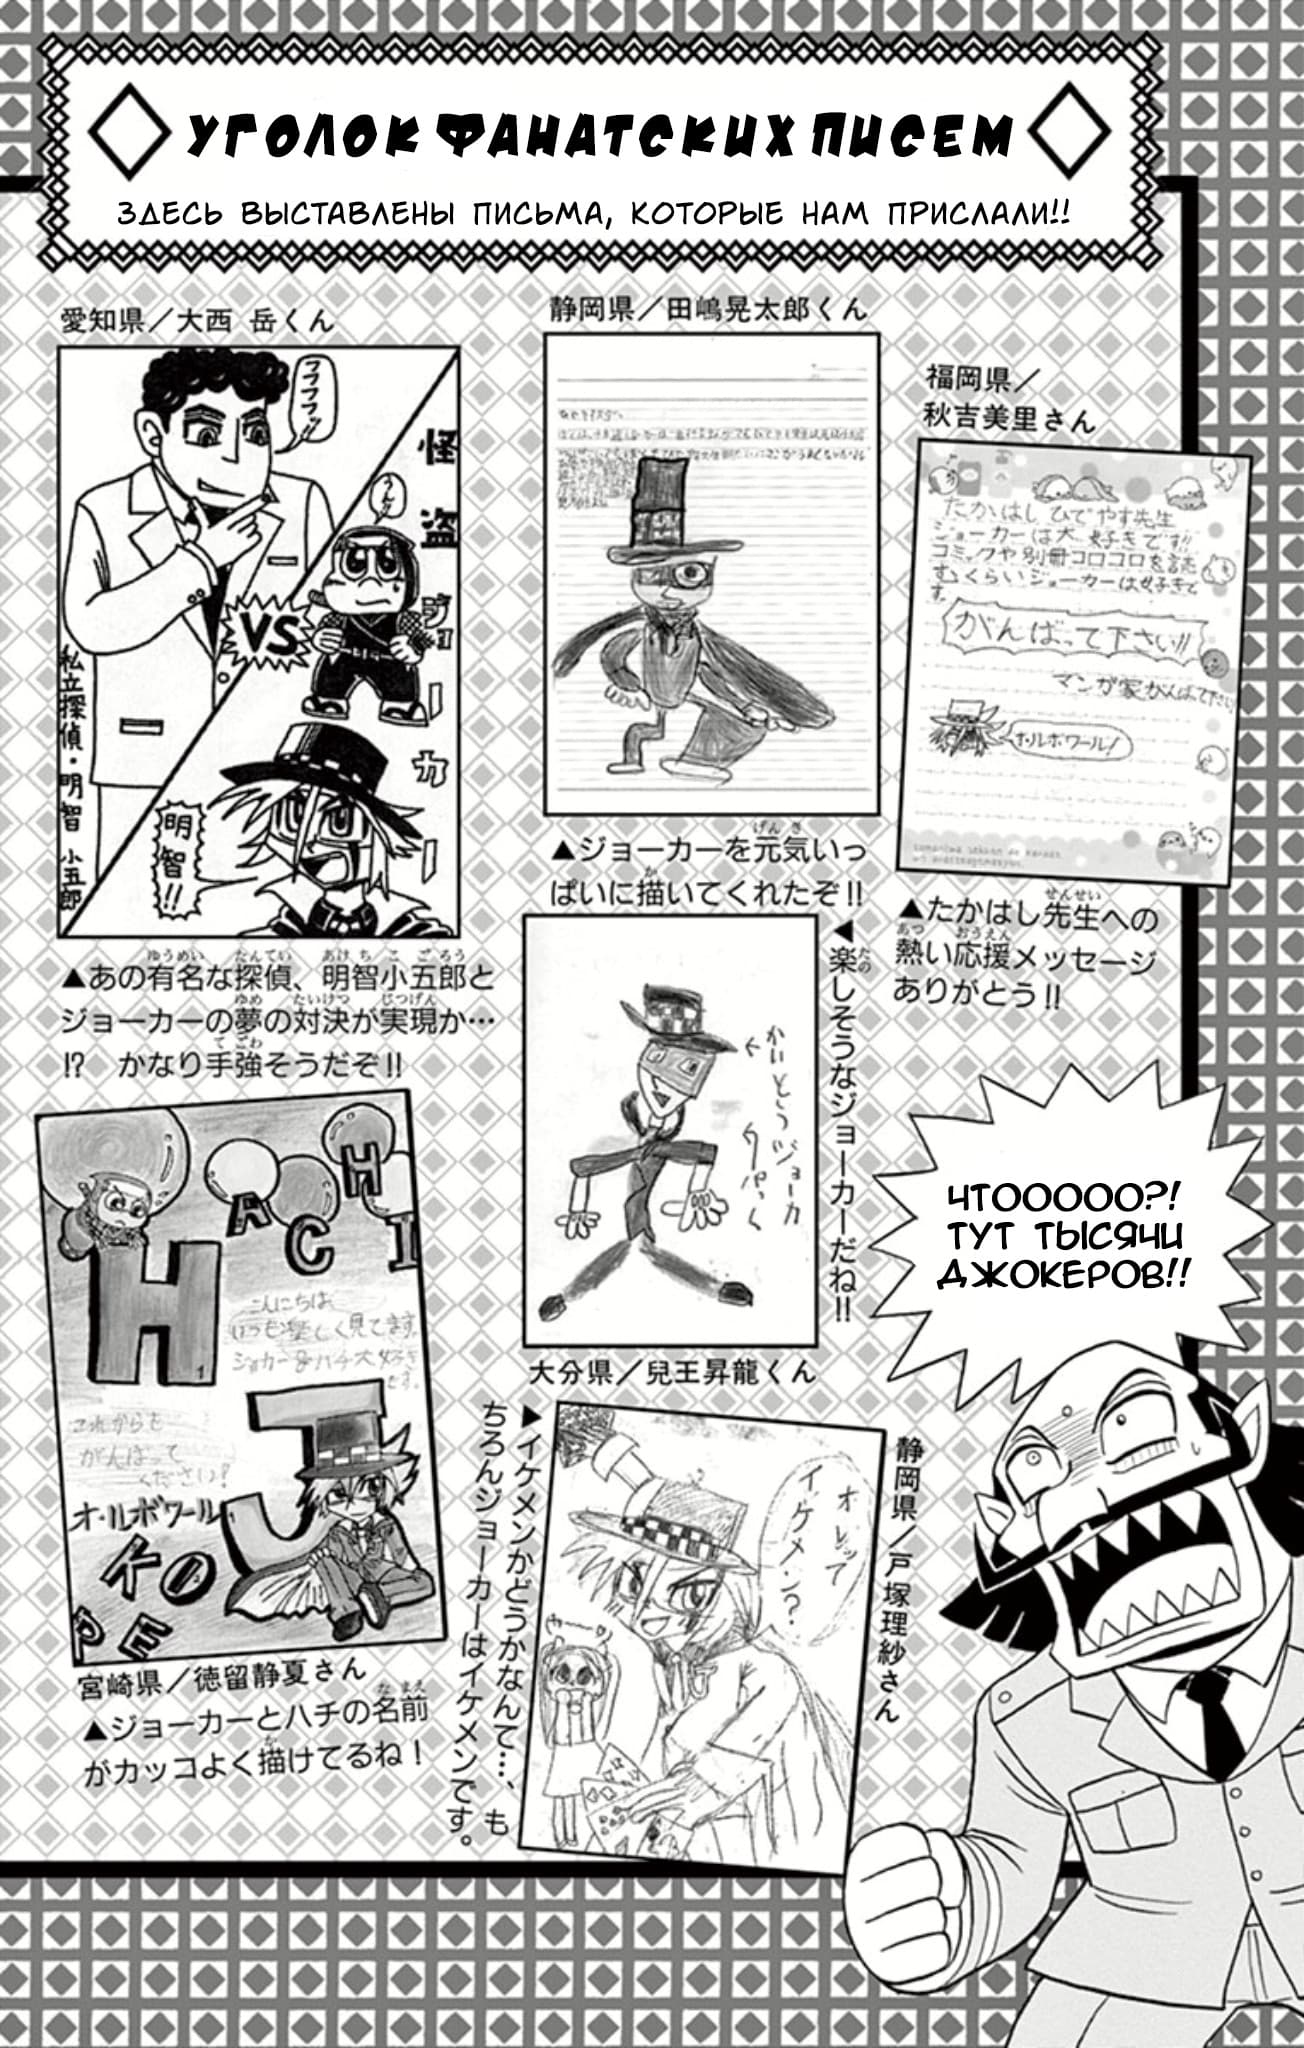 УГОЛОК ФАНАТСКИХ ПИСЕМ
ЗДЕСЬ ВЫСТАВЛЕНЫ ПИСЬМА, КОТОРЫЕ НАМ ПРИСЛАЛИ!!
愛知県／大西 岳くん
フフフフッ!!
怪盗ジョーカー
うん!!
VS
私立探偵・明智 小五郎
明智!!
▲あの有名な探偵、明智小五郎と
ジョーカーの夢の対決が実現か…
!? かなり手強そうだぞ!!
静岡県／田嶋晃太郎くん
▲ジョーカーを元気いっ
ぱいに描いてくれたぞ!!
福岡県／
秋吉美里さん
たかはしひでやす先生
ジョーカーは大好きです!!
コミックや別冊コロコロを読
むくらいジョーカーは好きで
す。
がんばって下さい!!
マンガ家がんばって下さい
オ・ルボワール!
▲たかはし先生への
熱い応援メッセージ
ありがとう!!
かいとうジョーカー
◀楽しそうなジョーカーだね!!
大分県／兒王昇龍くん
ЧТООООО?!
ТУТ ТЫСЯЧИ
ДЖОКЕРОВ!!
HACHI
H
1
こんにちは
いつも楽しく見てます。
ジョカー&ハチ大好き
です。
これからも
がんばって
ください!
オ・ルボワール
J
O
K
E
宮崎県／徳留静夏さん
▲ジョーカーとハチの名前
がカッコよく描けてるね!
▶イケメンかどうかなんて…、も
ちろんジョーカーはイケメンです。
オレって
イケメン?
静岡県／戸塚理紗さん